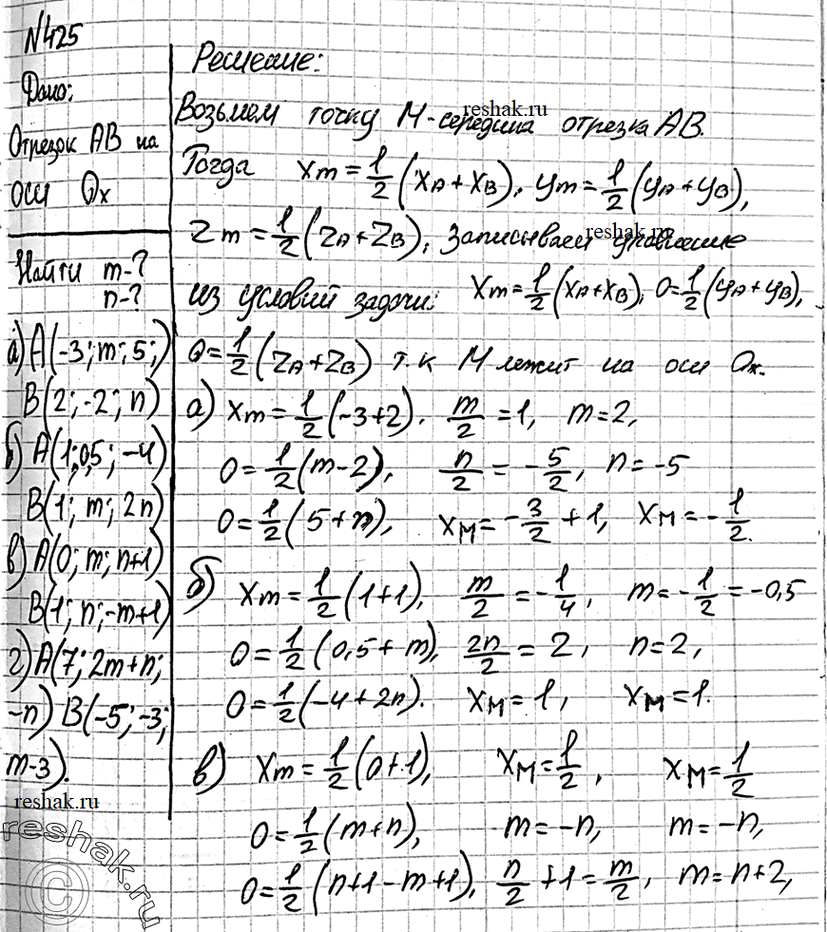 №425
Дано:
Отрезок AB на
оси Ox
Найти m-?
n-?
а) A(-3; m; 5;)
B(2; -2; n)
б) A(1; 0,5; -4)
B(1; m; 2n)
в) A(0; m; n+1)
B(1; n; -m+1)
г) A(7; 2m+n;
-n) B(-5; -3;
m-3).
Решение:
Возьмем точку M-середина отрезка AB.
Тогда Xm = 1/2 (XA + XB), Ym = 1/2 (YA + YB),
Zm = 1/2 (ZA + ZB), Записываем уравнение
из условий задачи: Xm = 1/2 (XA + XB), 0 = 1/2 (YA + YB),
0 = 1/2 (ZA + ZB) т.к M лежит на оси Ox.
а) Xm = 1/2 (-3+2). m/2 = 1, m = 2,
0 = 1/2 (m-2), n/2 = -5/2, n = -5
0 = 1/2 (5+n), XM = -3/2 + 1, XM = -1/2.
б) Xm = 1/2 (1+1), m/2 = -1/4, m = -1/2 = -0,5
0 = 1/2 (0,5 + m), 2n/2 = 2, n = 2,
0 = 1/2 (-4 + 2n). XM = 1, XM = 1.
в) Xm = 1/2 (0+1), XM = 1/2, XM = 1/2
0 = 1/2 (m+n), m = -n, m = -n,
0 = 1/2 (n+1-m+1), n/2 + 1 = m/2, m = n+2,
reshak.ru
reshak.ru
reshak.ru
reshak.ru